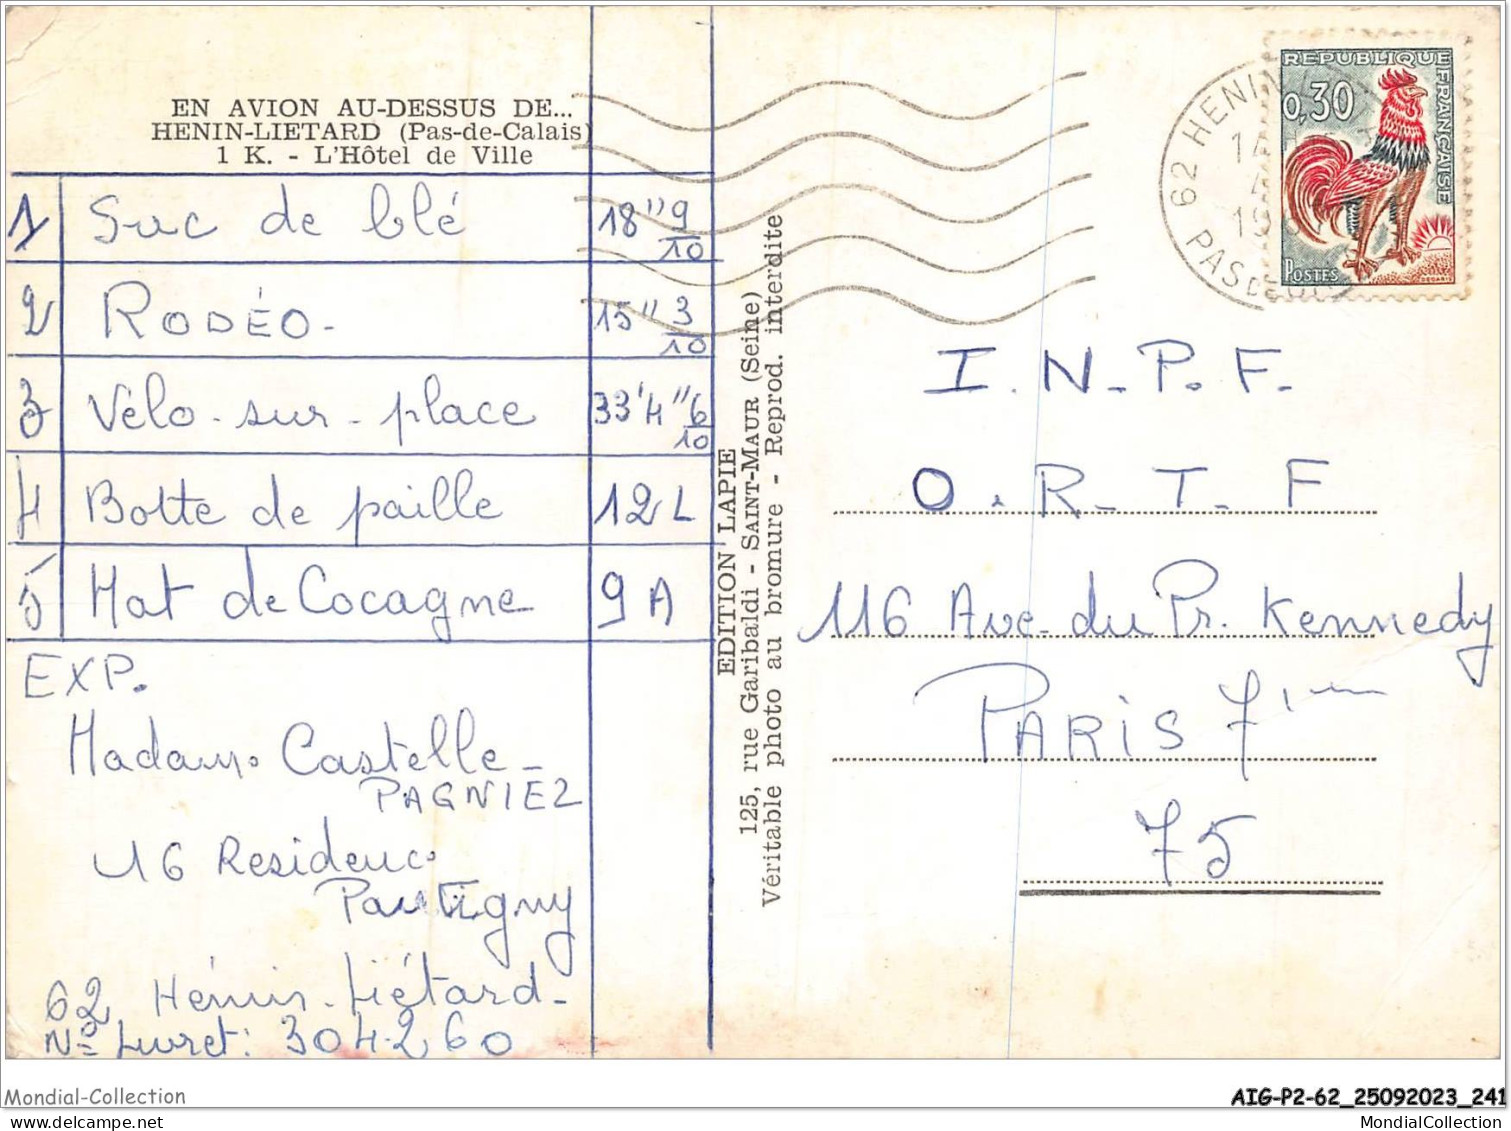 EN AVION AU-DESSUS DE...
HENIN-LIETARD (Pas-de-Calais)
1 K. - L'Hôtel de Ville
1 Suc de blé 18" 9/10
2 RODÉO - 15" 3/10
3 Vélo-sur-place 33'4" 6/10
4 Botte de paille 12 L
5 Mat de Cocagne 9 A
EXP.
Madame Castelle-
PAGNIEZ
16 Residence
62 Hénin-Liétard-
Nº Livret: 304.260
EDITION LAPIE
125, rue Garibaldi - SAINT-MAUR (Seine)
Véritable photo au bromure - Reprod. interdite
62 HENIN
PAS DE
REPUBLIQUE FRANÇAISE
0,30
POSTES
DECARIS
I.N.P.F.
O.R.T.F
116 Ave. du Pr. Kennedy
PARIS 7ième
75
Mondial-Collection
AIG-P2-62_25092023_241
MondialCollection